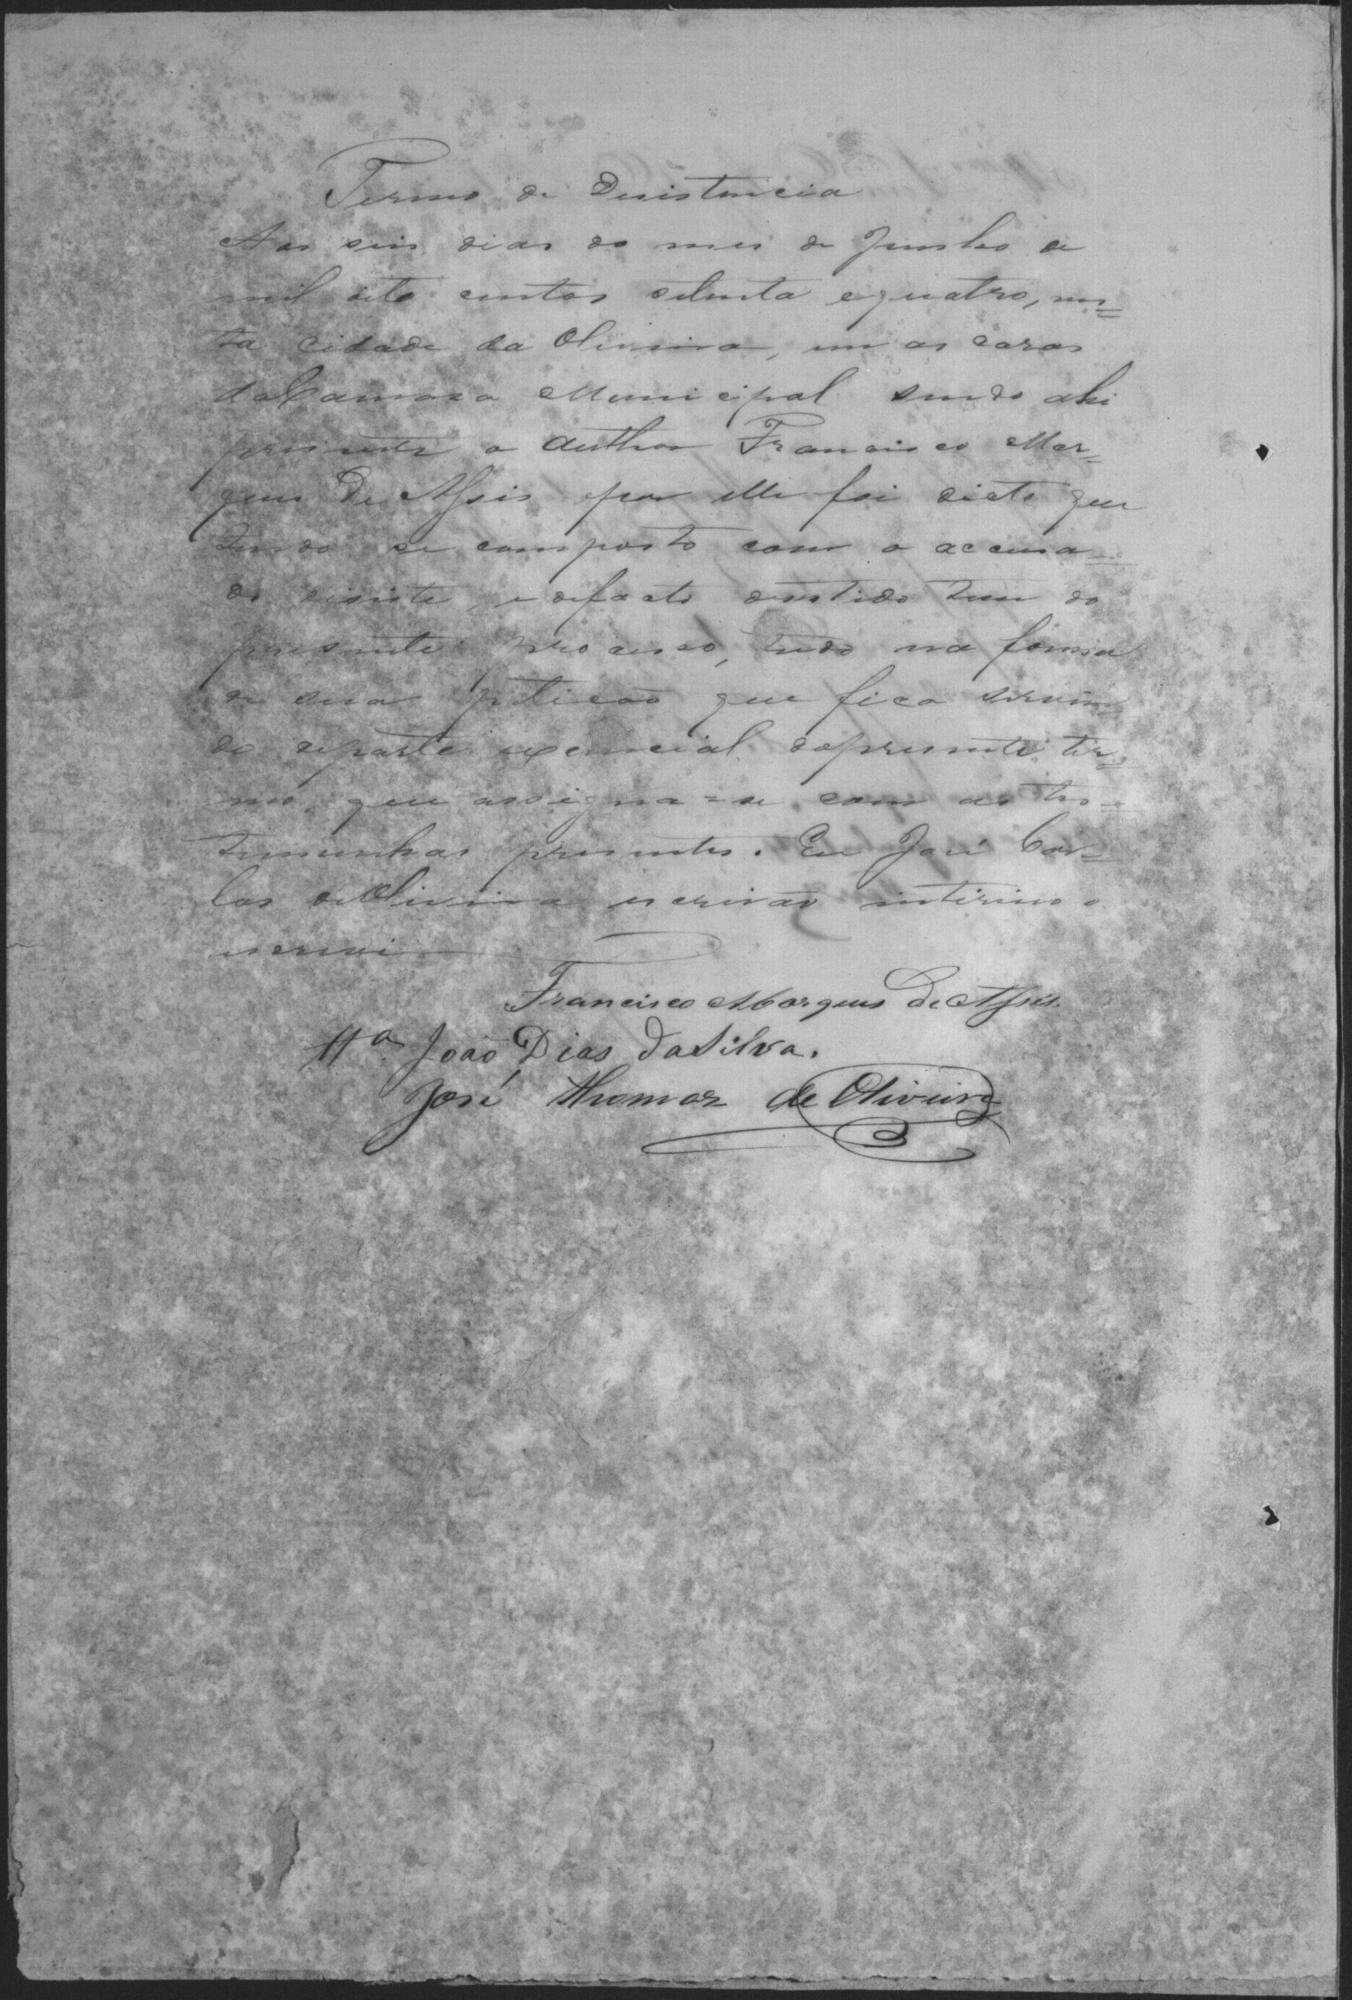 Termo de Desistencia
Aos seis dias do mes de Junho de
mil oito centos setenta e quatro, nes=
ta cidade da Oliveira, em as casas
da Camara Municipal sendo ahi
presente o author Francisco Mar=
ques De Assis por elle foi dicto que
tendo se composto com o accusa=
do desiste, e defacto desistido tem do
presente processo, tudo na forma
de sua petição que fica servin=
do departe excencial dopresente ter=
mo, que assigna=se com as tes=
temunhas presentes. Eu José Car=
los deOliveira escrivão interino o
escrevi
Francisco Marques De Assis
João Dias daSilva.
José Thomas de Oliveira